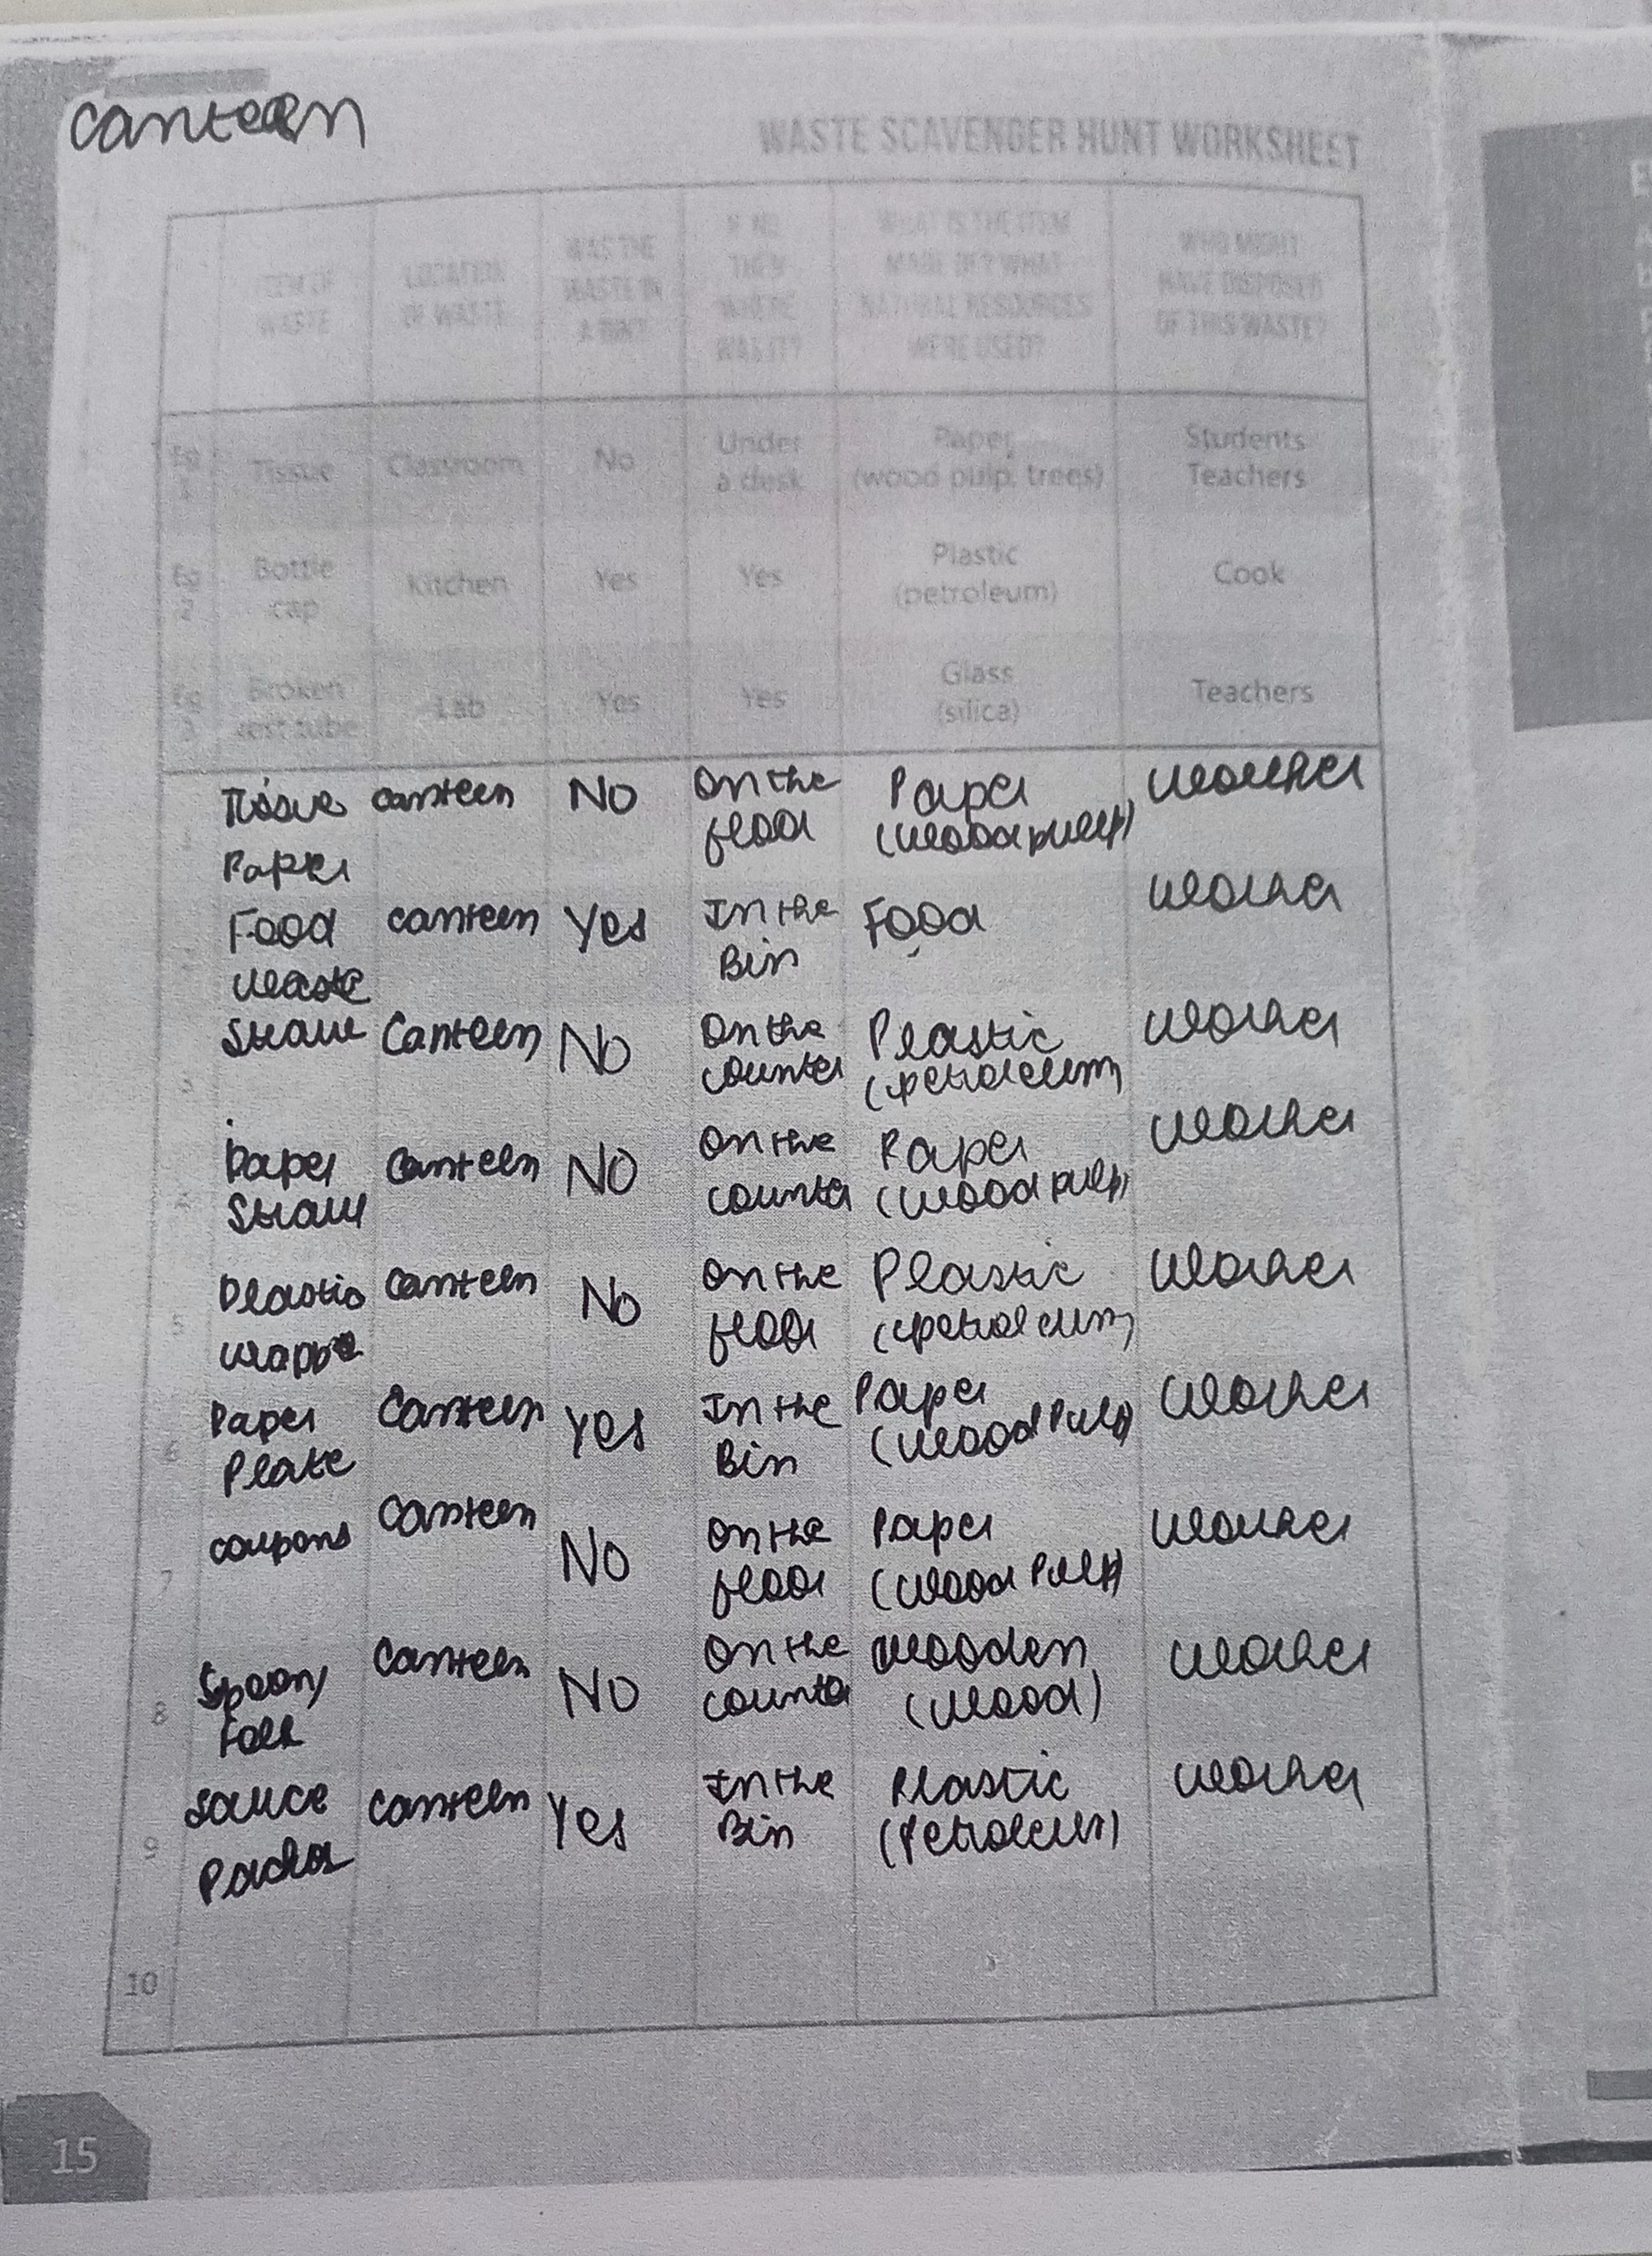 canteen
WASTE SCAVENGER HUNT WORKSHEET
ITEM OF WASTE LOCATION OF WASTE WAS THE WASTE IN A BIN? IF NO, THEN WHERE WAS IT? WHAT IS THE ITEM MADE OF? WHAT NATURAL RESOURCES WERE USED? WHO MIGHT HAVE DISPOSED OF THIS WASTE?
Eg 1 Tissue Classroom No Under a desk Paper (wood pulp, trees) Students Teachers
Eg 2 Bottle cap Kitchen Yes Yes Plastic (petroleum) Cook
Eg 3 Broken test tube Lab Yes Yes Glass (silica) Teachers
1 Tissue Paper canteen No On the floor Paper (wood pulp) worker
Food waste canteen Yes In the Bin Food worker
Straw Canteen No On the counter Plastic (petroleum) worker
Paper Straw Canteen NO On the counter Paper (wood pulp) worker
5 Plastic canteen No On the floor Plastic (petroleum) worker
6 Paper Plate Canteen Yes In the Bin Paper (wood Pulp) worker
7 coupons Canteen No On the floor Paper (wood Pulp) worker
8 Spoon/ Canteen No On the counter wooden (wood) worker
9 Sauce canteen Yes In the Bin Plastic (Petroleum) worker
10
15